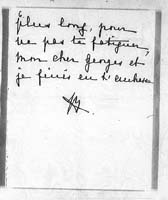 plus long, pour
ne pas te fatiguer,
mon cher Georges et
je finis en t'embrassant